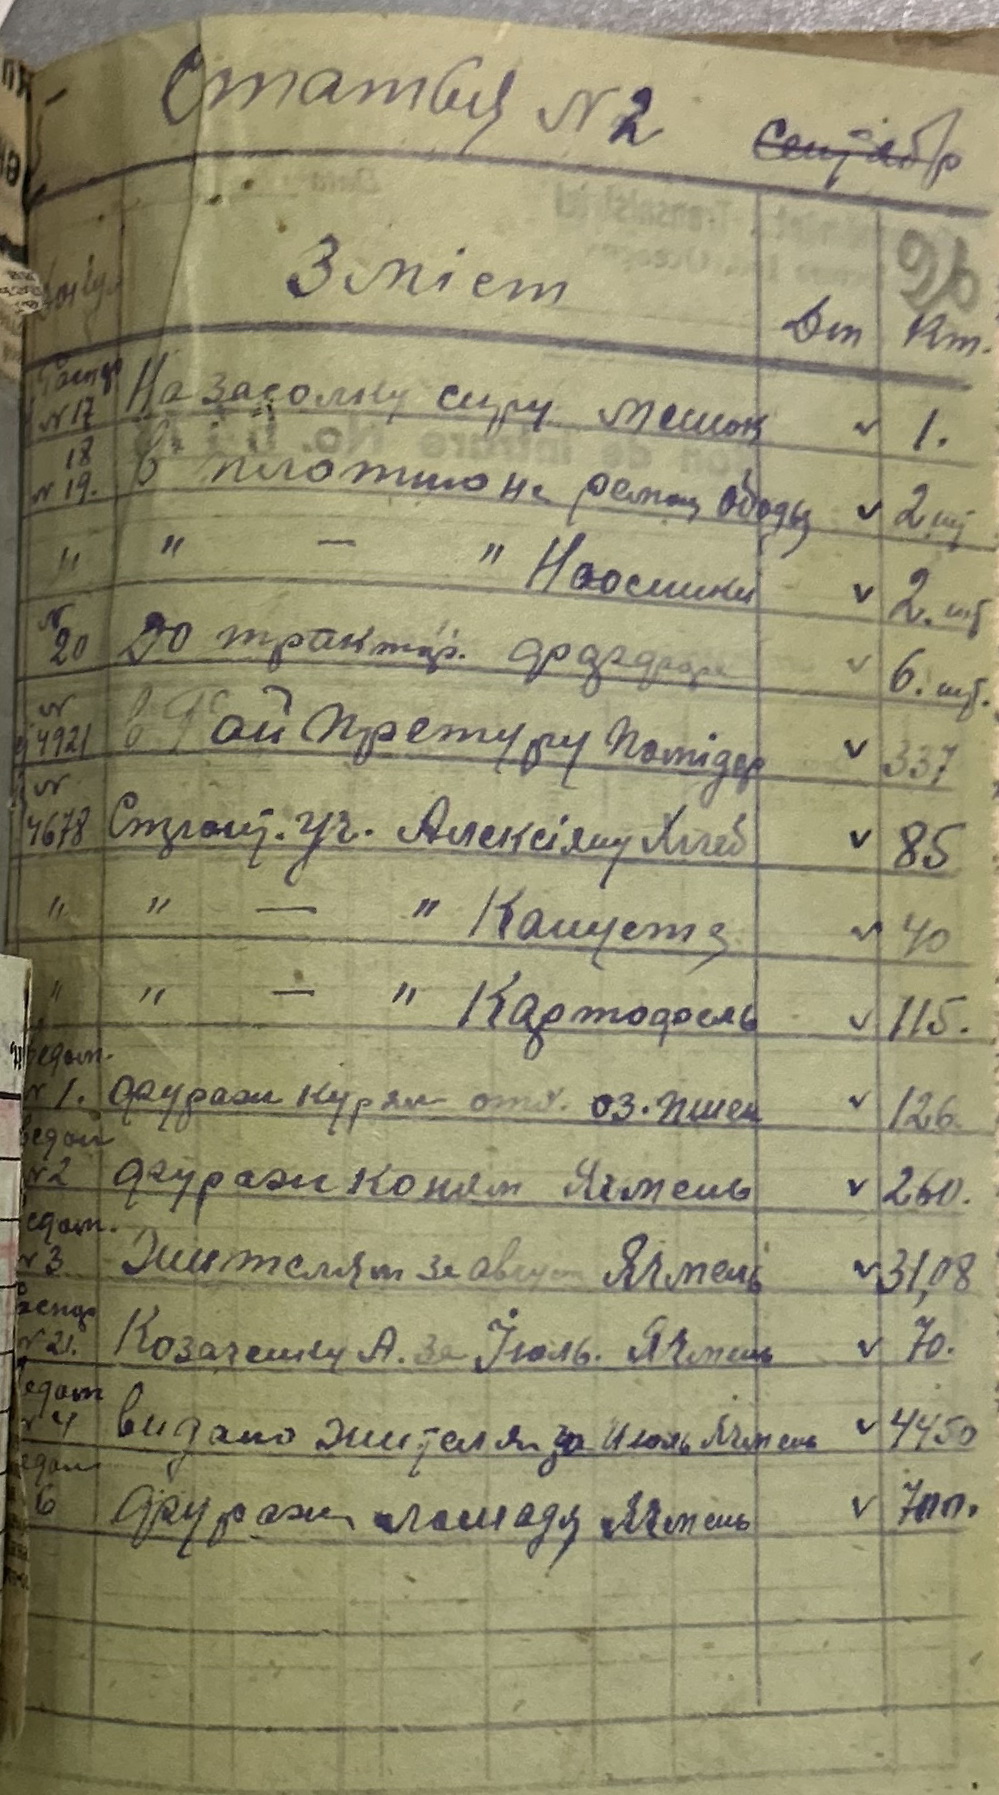 Статья N 2 Сентябр
26
Зміст Дт Кт.
Распор N 17 На засолку сиру мешок v 1.
18
N 19. В плотню на ремонт ободы v 2 шт
" " — " Носилки v 2. шт
N 20 До тракторо. v 6. шт.
N 4921 в Рай Претуру Помідор v 337
N 4678 Уч. Алексіяну Хліб v 85
" " — " Капуста v 40
" " — " Картофель v 115.
Ведом. N 1. фураж курям отх. оз. пшен v 126.
Ведом N 2 фураж коням Ячмень v 260.
Ведом. N 3 Жителям за август Ячмень v 31,08
Распор N 21. Козаченку А. за Июль. Ячмень v 70.
Ведом N 4 видано жителям за Июль Ячмень v 4450
Ведом 6 фураж лошадя Ячмень v